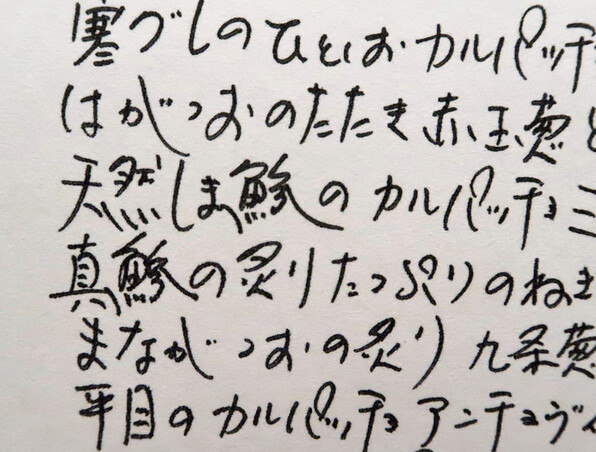 寒グレのひとしおカルパッチ
はがつおのたたき赤玉葱と
天然しま鯵のカルパッチョミ
真鯵の炙りたっぷりのねき
まながつおの炙り九条葱
平目のカルパッチョアンチョヴィ